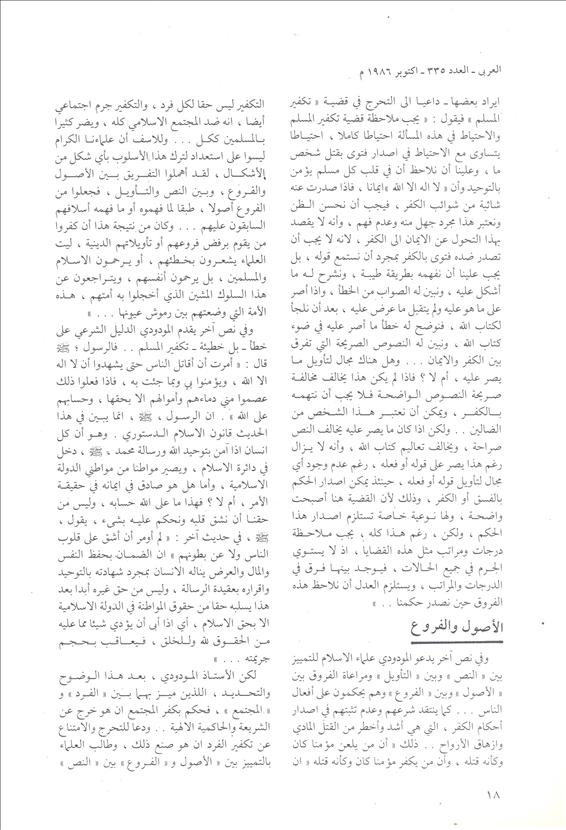 العربى ـ العدد ٣٣٥ ـ اكتوبر ١٩٨٦ م
ايراد بعضها ـ داعيا الى التحرج في قضية « تكفير
المسلم » فيقول : « يجب ملاحظة قضية تكفير المسلم
والاحتياط في هذه المسألة احتياطا كاملا ، احتيـاطا
يتساوى مع الاحتياط في اصدار فتوى بقتل شخص
ما ، وعلينا أن نلاحظ أن في قلب كل مسلم يؤمن
بالتوحيد وأن « لا اله الا الله » ايمانا ، فاذا صدرت عنه
شائبة من شوائب الكفر ، فيجب أن نحسن الظن
ونعتبر هذا مجرد جهل منه وعدم فهم ، وأنه لا يقصد
بهذا التحول عن الايمان الى الكفر ، لانه لا يجب أن
تصدر ضده فتوى بالكفر بمجرد أن نستمع قوله ، بل
يجب علينا أن نفهمه بطريقة طيبـة ، ونشرح لـه ما
أشكل عليه ، ونبين له الصواب من الخطأ ، واذا أصر
على ما هو عليه ولم يتقبل ما عرض عليه ، بعد أن نلجأ
لكتاب الله ، فنوضح له خطأ ما أصر عليه في ضوء
كتاب الله ، ونبين له النصوص الصريحة التي تفرق
بين الكفر والايمان ... وهل هناك مجال لتأويل مـا
يصر عليه ، أم لا ؟ فاذا لم يكن هذا يخالف مخالفـة
صريحة النصـوص الـواضحـة فـلا يجب أن نتهمـه
بـالكفـر ، ويمكن أن نعتبـر هـذا الشخص من
الضالين .. ولكن اذا كان ما يصر عليه يخالف النص
صراحة ، ويخالف تعاليم كتاب الله ، وأنه لا يـزال
رغم هذا يصر على قوله أو فعله ، رغم عدم وجود أي
مجال لتأويل قوله أو فعله ، حينئذ يمكن اصدار الحكم
بالفسق أو الكفر ، وذلك لأن القضية هنا أصبحت
واضحـة ، ولها نـوعية خـاصة تستلزم اصدار هـذا
الحكم ، ولكن ، رغم هـذا كله ، يجب مـلاحظـة
درجات ومراتب مثل هذه القضايا ، اذ لا يستـوي
الجرم في جميع الحـالات ، فيـوجد بينهـا فرق في
الدرجات والمراتب ، ويستلزم العدل أن نلاحظ هذه
الفروق حين نصدر حكمنا .. »
الأصول والفروع
وفي نص آخر يدعو المودودي علماء الاسلام للتمييز
بين « النص » وبين « التأويل » ومراعاة الفروق بين
« الأصول » وبين « الفروع » وهم يحكمون على أفعال
الناس ... كما ينتقد شرعهم وعدم تثبتهم في اصدار
أحكام الكفر ، التي هي أشد وأخطر من القتل المادي
وازهاق الأرواح .. ذلك « أن من يلعن مؤمنا كان
وكأنه قتله ، وأن من يكفر مؤمنا كان وكأنه قتله « ان
التكفير ليس حقا لكل فرد ، والتكفير جرم اجتماعي
أيضا ، انه ضد المجتمع الاسلامي كله ، ويضر كثيرا
بـالمسلمين ككـل ... وللاسف أن علماءنـا الكرام
ليسوا على استعداد لترك هذا الأسلوب بأي شكل من
الأشكـال ، لقـد أهملوا التفـريق بـين الأصـول
والفروع ، وبين النص والتـأويـل ، فجعلوا من
الفروع أصولا ، طبقا لما فهموه أو ما فهمه أسلافهم
السابقون عليهم ... وكان من نتيجة هذا أن كفروا
من يقوم برفض فروعهم أو تأويلاتهم الدينية ، ليت
العلماء يشعـرون بخطئهم ، أو يـرحمـون الاسـلام
والمسلمين ، بل يرحمون أنفسهم ، ويتـراجعون عن
هذا السلوك المشين الذي أخجلوا به أمتهم ، هـذه
الأمة التي وضعتهم بين رموش عيونها ... »
وفي نص آخر يقدم المودودي الدليل الشرعي على
خطأ ـ بل خطيئة ـ تكفير المسلم .. فالرسول ، ﷺ
قال : « أمرت أن أقاتل الناس حتى يشهدوا أن لا اله
الا الله ، ويؤمنوا بي وبما جئت به ، فاذا فعلوا ذلك
عصموا مني دماءهم وأموالهم الا بحقها ، وحسابهم
على الله » . ان الرسول ، ﷺ ، انما يبين في هذا
الحديث قانون الاسلام الـدستوري . وهـو أن كل
انسان اذا آمن بتوحيد الله ورسالة محمد ، ﷺ ، دخل
في دائرة الاسلام ، ويصير مواطنا من مواطني الدولة
الاسلامية ، وأما هل هو صادق في ايمانه في حقيقـة
الأمر ، أم لا ؟ فهذا ما على الله حسابه ، وليس من
حقنـا أن نشق قلبه ونحكم عليـه بشىء ، يقول ،
ﷺ ، في حديث آخر : « لم أومر أن أشق على قلوب
الناس ولا عن بطونهم » ان الضمـان بحفظ النفس
والمال والعرض يناله الانسان بمجرد شهادته بالتوحيد
واقراره بعقيدة الرسالة ، وليس من حق غيره أبدا بعد
هذا يسلبه حقا من حقوق المواطنة في الدولة الاسلامية
الا بحق الاسلام ، أي اذا أبى أن يؤدي شيئا مما عليه
مـن الحقـوق لله وللخلق ، فيـعاقـب بـحـجـم
جريمته ... »
لكن الأستـاذ المـودودي ، بعـد هـذا الـوضـوح
والتحـديـد ، اللذين ميـز بهـما بـين « الفـرد » و
« المجتمع » ، فحكم بكفر المجتمع ان هو خرج عن
الشريعة والحاكمية الالهية .. ودعا للتحرج والامتناع
عن تكفير الفرد ان هو صنع ذلك ، وطالب العلماء
بالتمييز بين « الأصول و « الفروع » بين « النص »
١٨